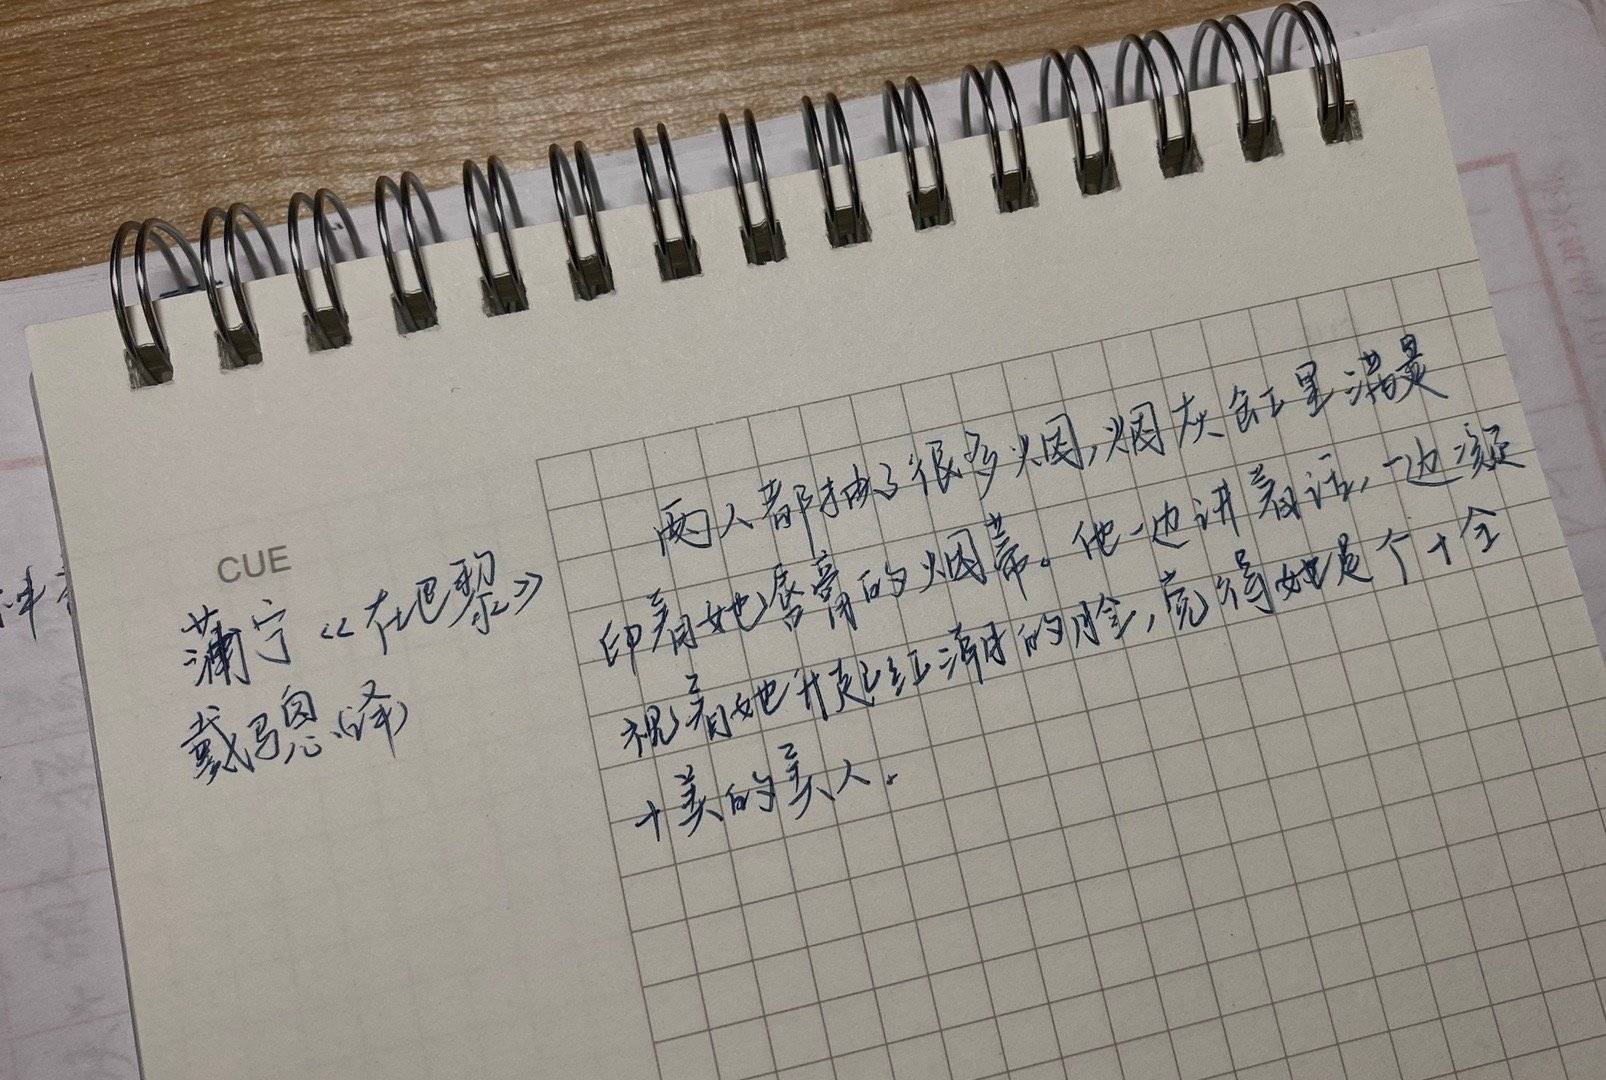 CUE
蒲宁《在巴黎》
戴骢(译)
两人都抽了很多烟,烟灰缸里满是
印着她唇膏的烟蒂。他一边讲着话,一边凝
视着她升起红潮的脸,觉得她是个十全
十美的美人。